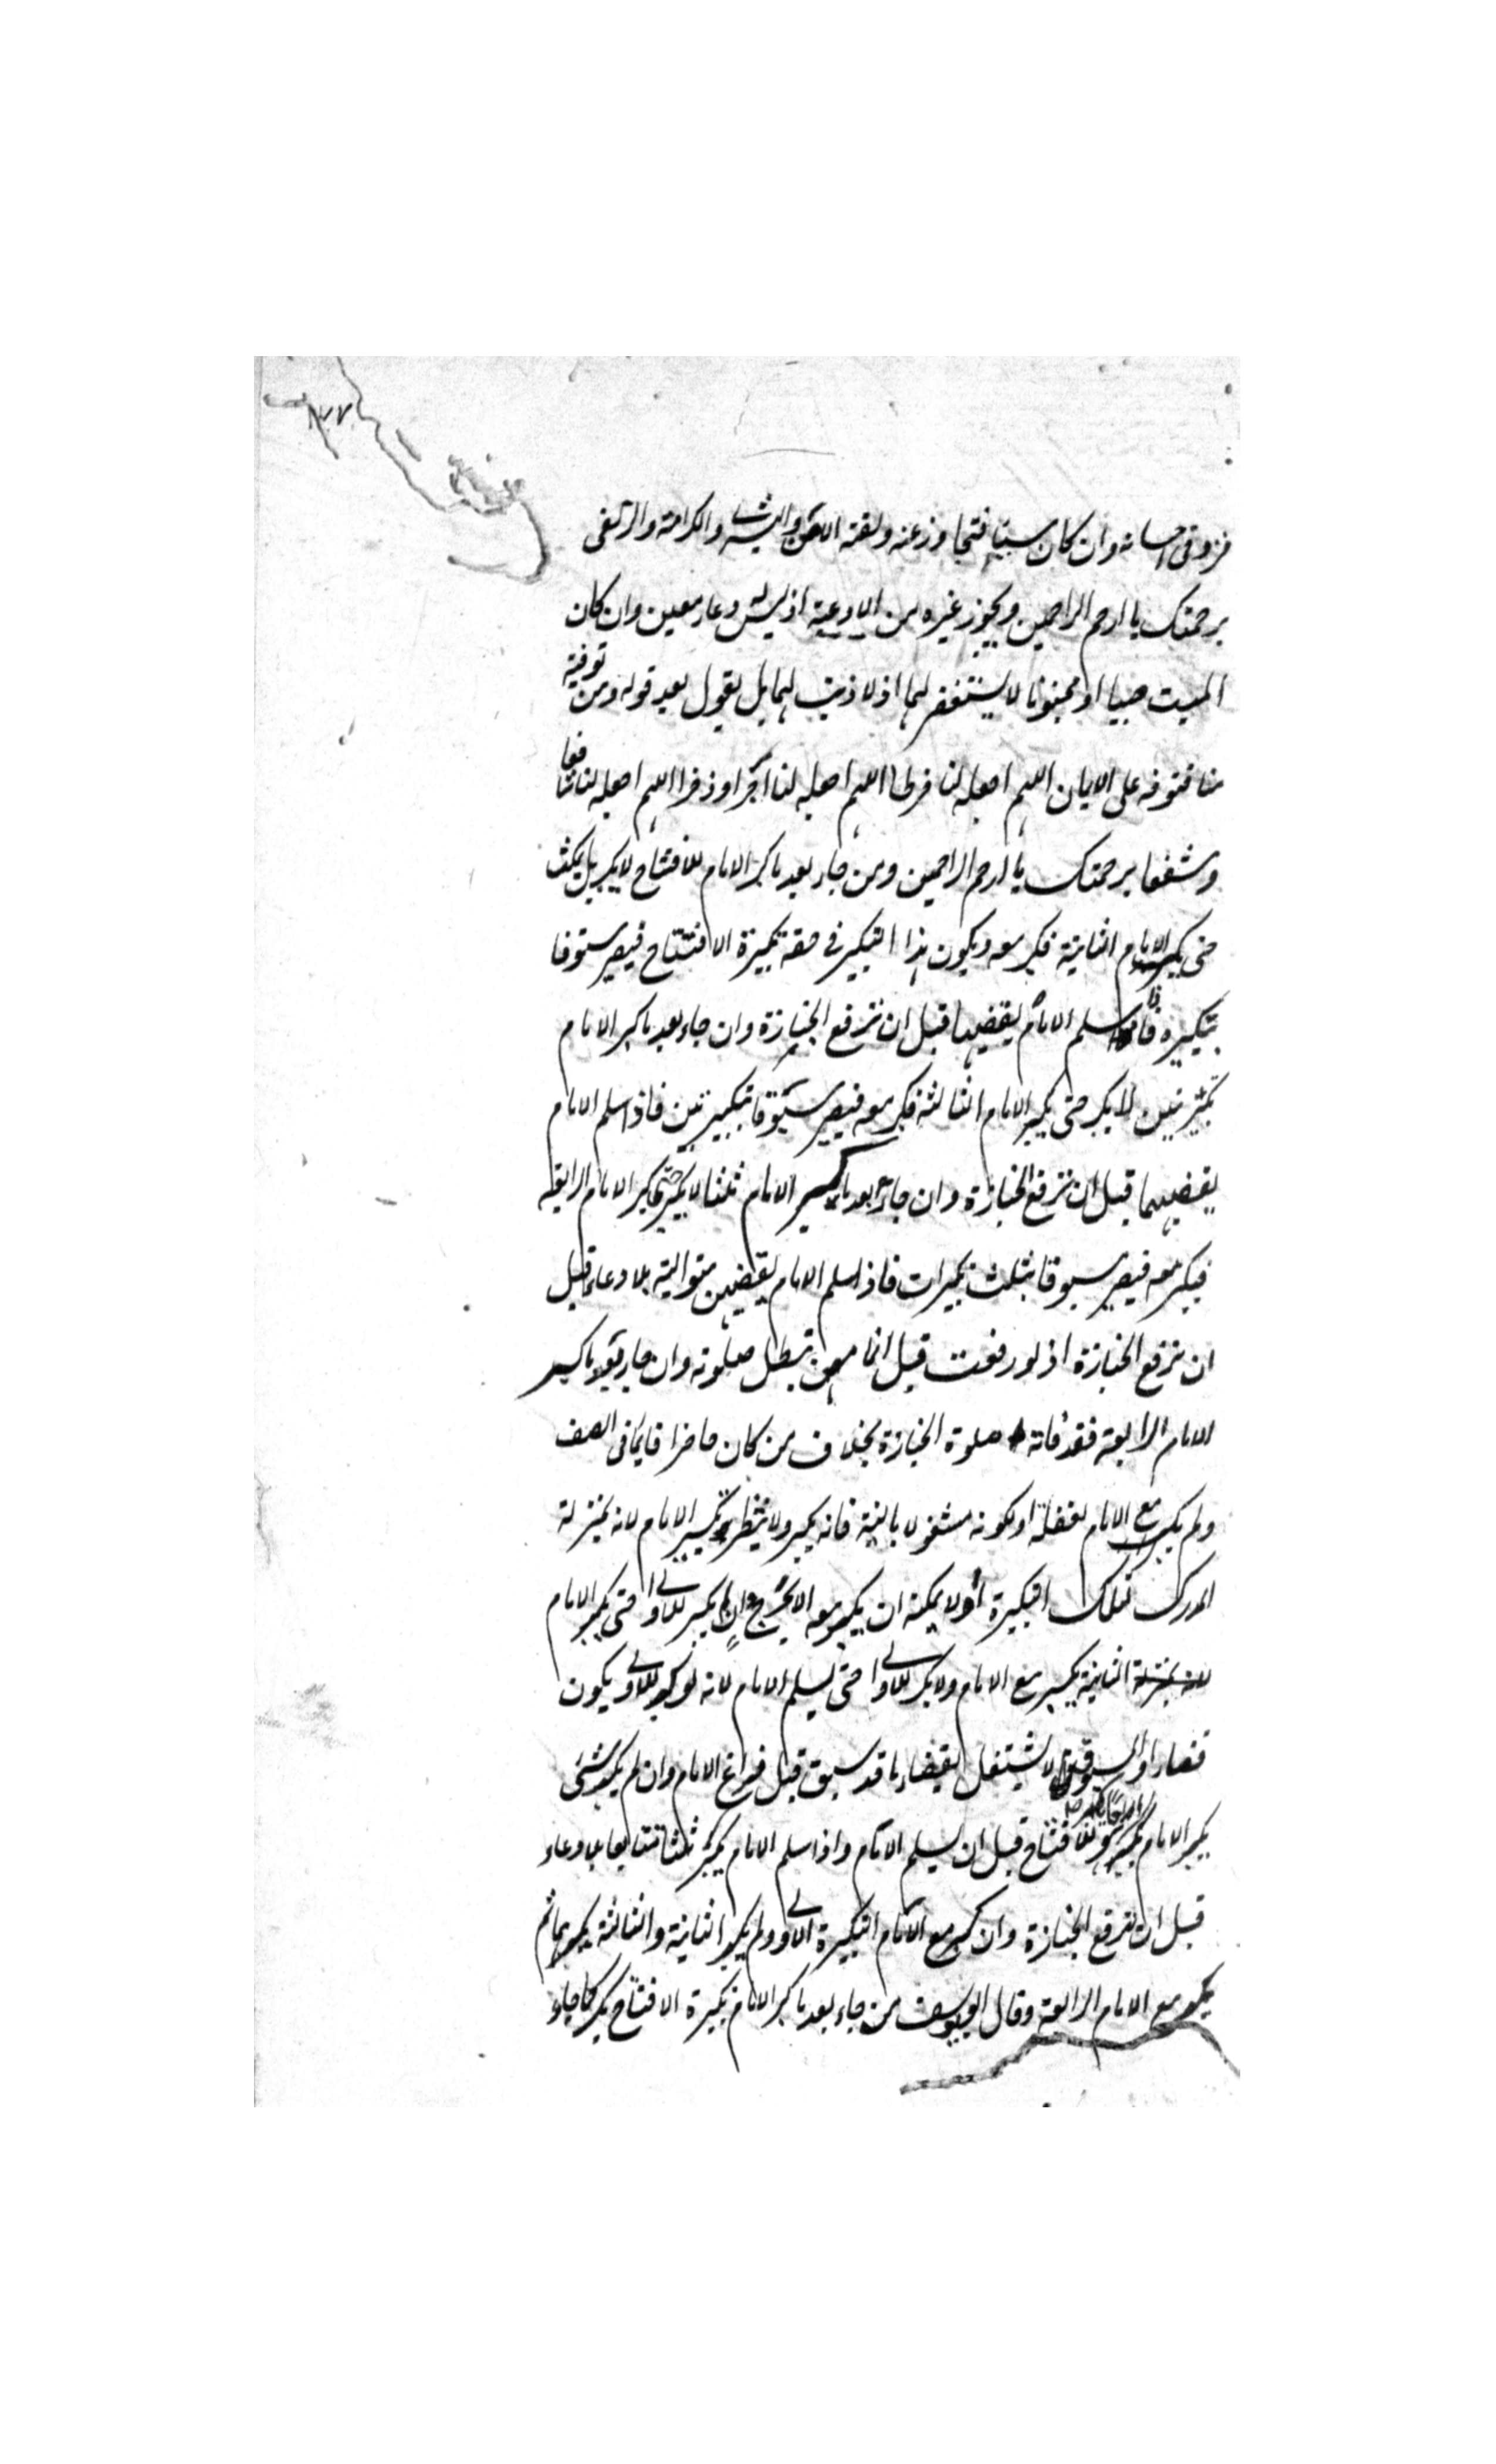 ١٧٧
فزد في احسانه وان كان مسيئا فتجاوز عنه ولقنه الامن والبشرى والكرامة والزلفى
برحمتك يا ارحم الراحمين ويجوز غيره من الادعية اذ ليس له دعاء معين وان كان
الميت صبيا او مجنونا لا يستغفر لهما اذ لا ذنب لهما بل يقول بعد قوله ومن توفيته
منا فتوفه على الايمان اللهم اجعله لنا فرطا اللهم اجعله لنا اجرا وذخرا اللهم اجعله لنا شافعا
ومشفعا برحمتك يا ارحم الراحمين ومن جاء بعد ما كبر الامام للافتتاح لا يكبر بل يمكث
حتى يكبر الامام الثانية فيكبر معه ويكون هذا التكبير في حقه تكبيرة الافتتاح فيصير مسبوقا
بتكبيرة فاذا سلم الامام يقضيها قبل ان ترفع الجنازة وان جاء بعد ما كبر الامام
تكبيرتين لا يكبر حتى يكبر الامام الثالثة فيكبر معه فيصير مسبوقا بتكبيرتين فاذا سلم الامام
يقضيهما قبل ان ترفع الجنازة وان جاء بعد ما كبر الامام ثلثا لا يكبر حتى يكبر الامام الرابعة
فيكبر معه فيصير مسبوقا بثلث تكبيرات فاذا سلم الامام يقضيهن متوالية بلا دعاء قبل
ان ترفع الجنازة اذ لو رفعت قبل اتمامهن تبطل صلوته وان جاء بعد ما كبر
الامام الرابعة فقد فاته صلوة الجنازة بخلاف من كان حاضرا قائما في الصف
ولم يكبر مع الامام لغفلة او لكونه مشغولا بالنية فانه يكبر ولا ينتظر تكبير الامام لانه بمنزلة
المدرك لتلك التكبيرة اذ لا يمكنه ان يكبر معه الا بحرج وان لم يكبر للاولى حتى يكبر الامام
الثانية يكبر مع الامام ولا يكبر للاولى حتى يسلم الامام لانه لو كبر للاولى يكون
قضاء والمسبوق لا يشتغل بقضاء ما قد سبق قبل فراغ الامام وان لم يكبر حتى
يكبر الامام للافتتاح قبل ان يسلم الامام واذا سلم الامام يكبر ثلثا متتابعا بلا دعاء
قبل ان ترفع الجنازة وان كبر مع الامام التكبيرة الاولى ولم يكبر الثانية والثالثة يكبرهما ثم
يكبر مع الامام الرابعة وقال ابو يوسف من جاء بعد ما كبر الامام تكبيرة الافتتاح يكبر كما جاء